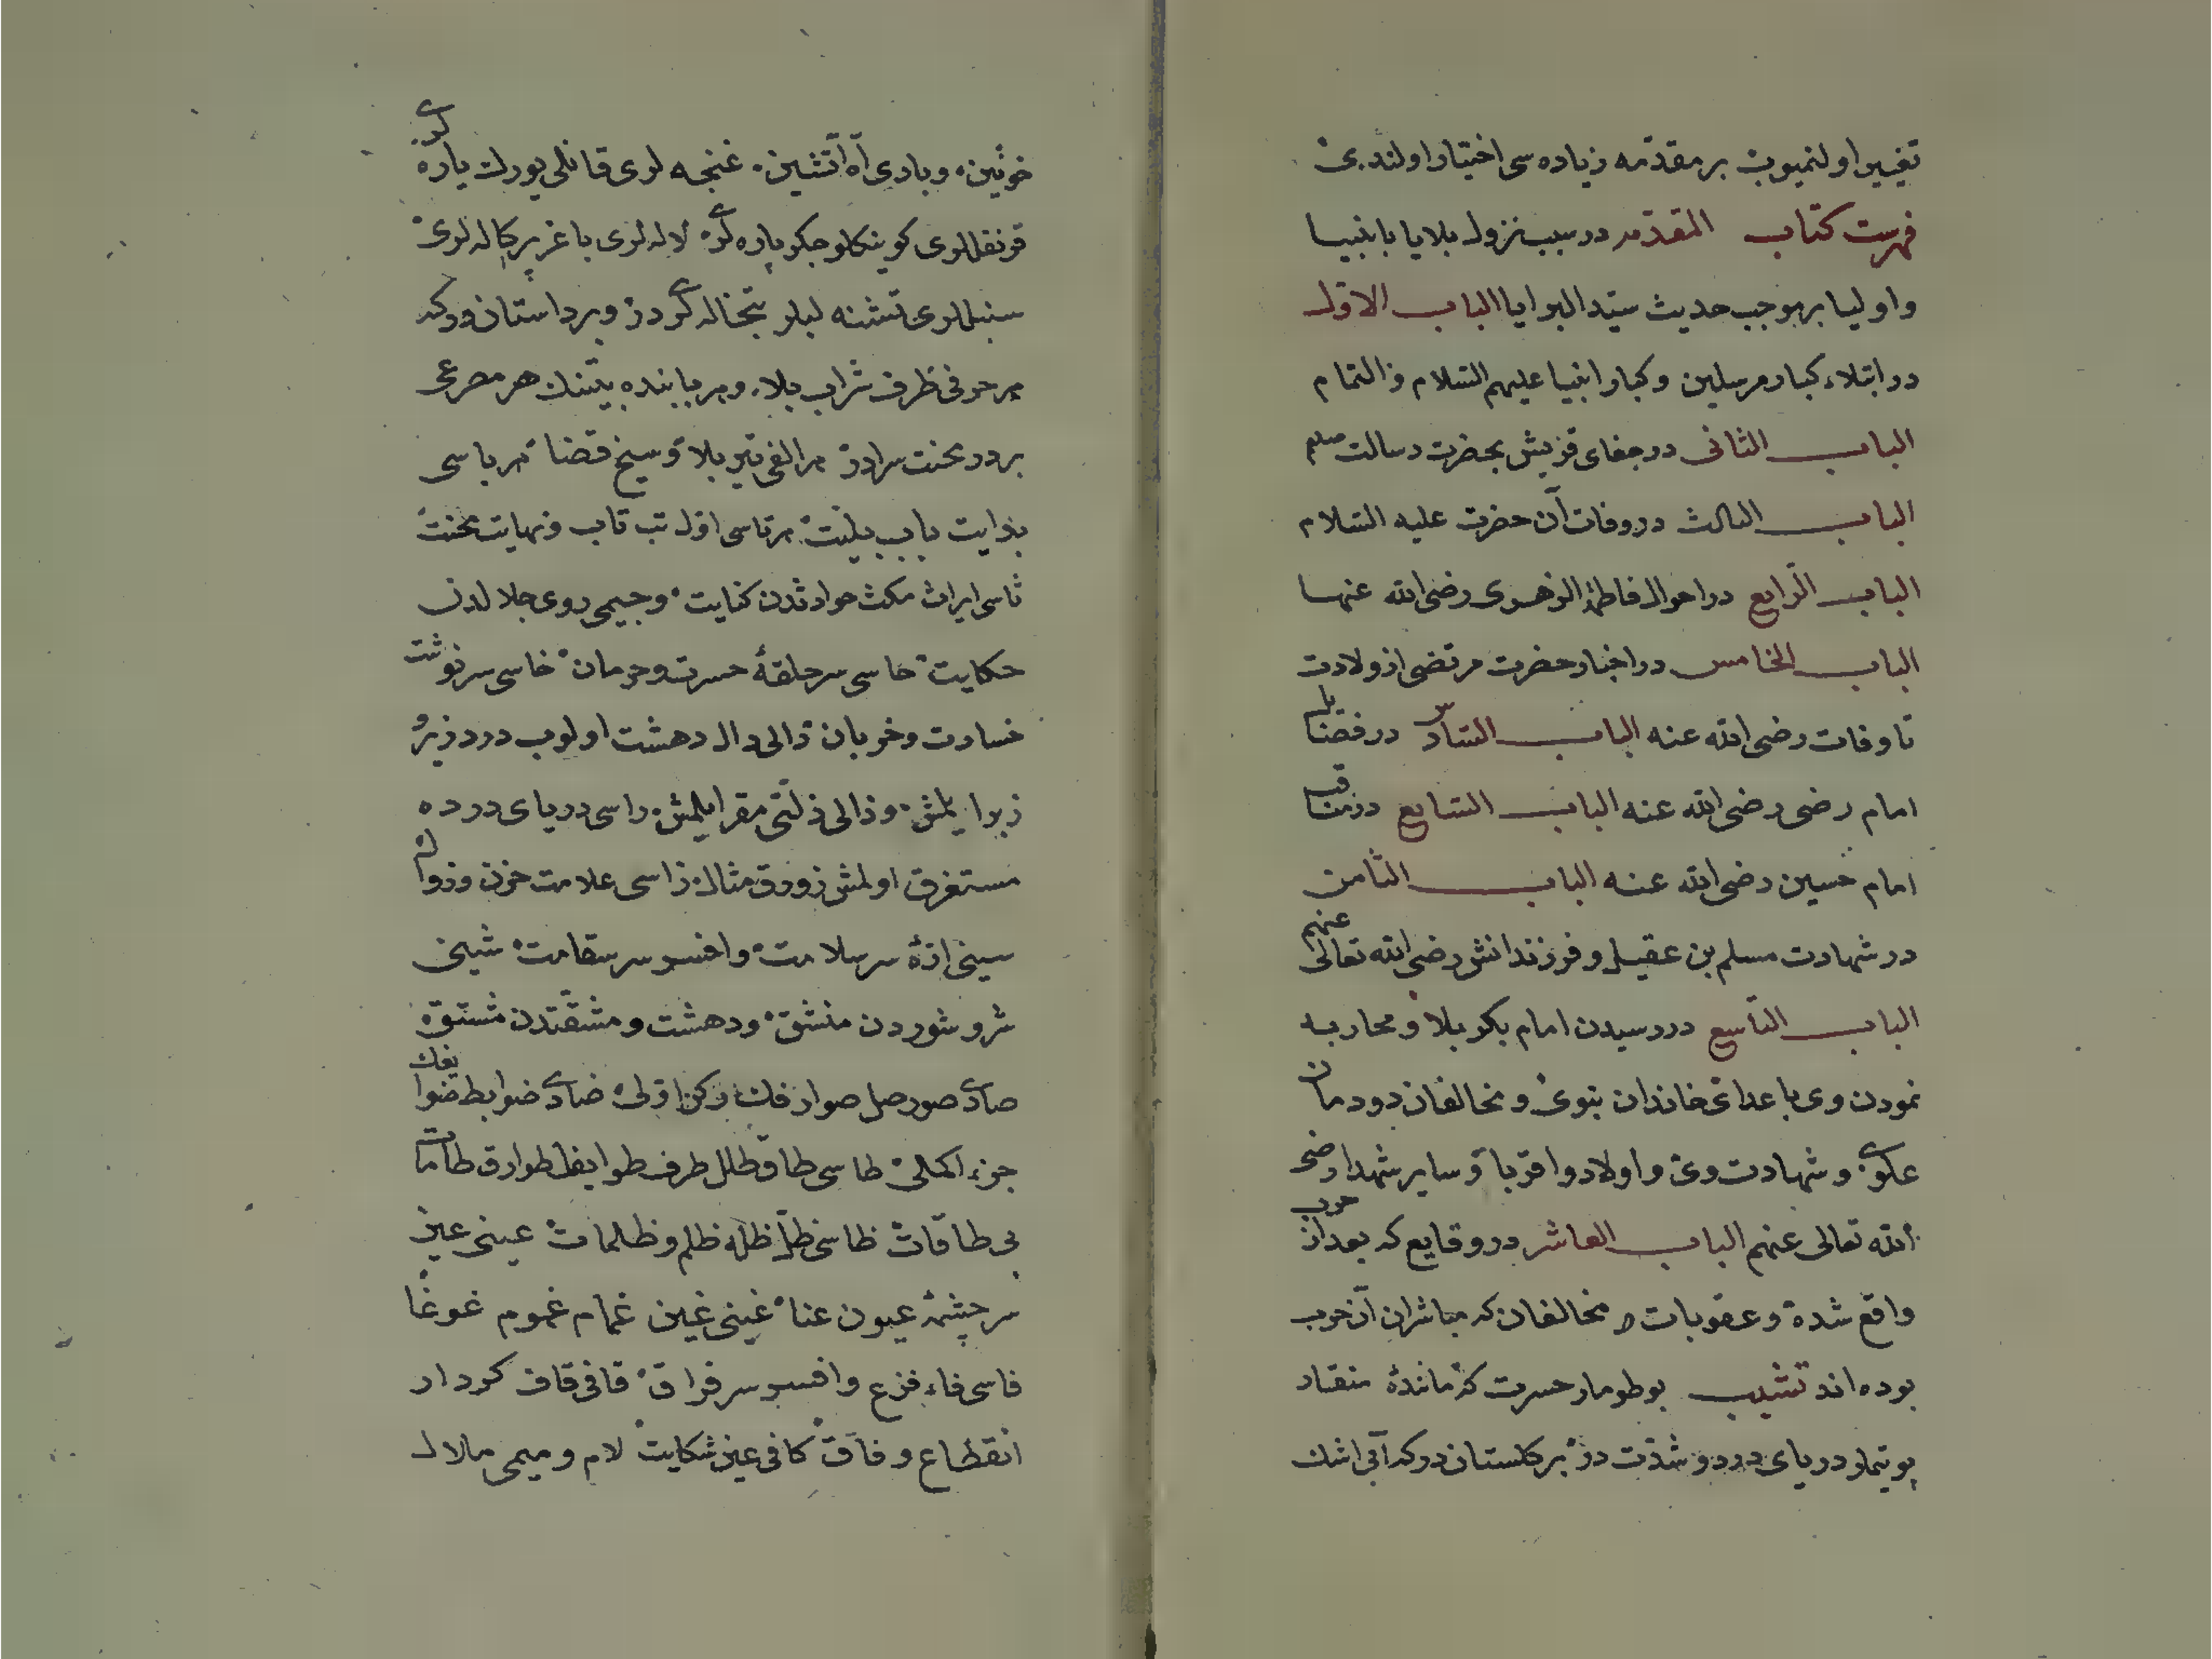 تغییر اولنمیوب بر مقدّمه زیاده سی اختیار اولندی
فهرست کتاب المقدّمه در سبب نزول بلایا بانبیا
و اولیا بر موجب حدیث سیّد البرایا الباب الاوّل
در ابتلاء کبار مرسلین و کبار انبیا علیهم السّلام
الباب الثانی در جفای قریش بحضرت رسالت صلعم
الباب الثالث در وفات آن حضرت علیه السّلام
الباب الرّابع در احوال فاطمۀ الزهری رضی الله عنها
الباب الخامس در اخبار حضرت مرتضی از ولادت
تا وفات رضی الله عنه الباب السّادس در فضایل
امام رضی رضی الله عنه الباب السّابع در مناقب
امام حسین رضی الله عنه الباب الثامن
در شهادت مسلم بن عقیل و فرزندانش رضی الله تعالی عنهم
الباب التاسع در رسیدن امام بکربلا و محاربه
نمودن وی با عدای خاندان نبوی و مخالفان دودمان
علوی و شهادت وی و اولاد و اقربا و سایر شهدا رضی
الله تعالی عنهم الباب العاشر در وقایع که بعد از حرب
واقع شده و عقوبات مخالفان که مباشران آن حرب
بوده اند تشبیب بو طومار حسرت که مانندۀ منقار
بر گلستان درکه آبی اشک
خونین و بادی آه آتشین غنچه لری قانلی یورک پاره لری
قرنفللری کوینکلو جکر پاره لری لاله لری باغر پرکاله لری
سنبللری تشنه لبلر تبخاله لری در و بر داستان درکه
هر حرفی ظرف شراب بلا و هر مصرعی
بر در محنت سرادر هر الفی تیر بلا و سیخ قضا هر باسی
بدایت باب بلیّت هر تاسی اوّل تب تاب و نهایت محنت
ثاسی ایراث مکث حوادثدن کنایت و جیمی روی جلالدن
حکایت حاسی سر حلقۀ حسرت و حرمان خاسی سرنوشت
خسارت و خربان دالی دال دهشت اولوب درد
و ذالی ذلّتی مقر ایلمش راسی دریای درده
مستغرق اولمش زورق مثال زاسی علامت حزن و زوال
سینی ارّۀ سر سلامت و افسر سر سقامت شینی
شر و شوردن منشق و دهشت و مشقّتدن مشتق
صادی صور صل صوارفک رکن اولی ضادی ضوابط
جزء اکملی طاسی طاق طلل طرف طوایف طوارق طامات
بی طاقات ظاسی ظلّ ظلۀ ظلم و ظلمات عینی عین
سر چشمۀ عیون عنا غینی غین غمام غموم غوغا
فاسی فاء فزع و افسر سر فراق قافی قاف کردار
انقطاع وفاق کافی عین شکایت لام و میمی ملال